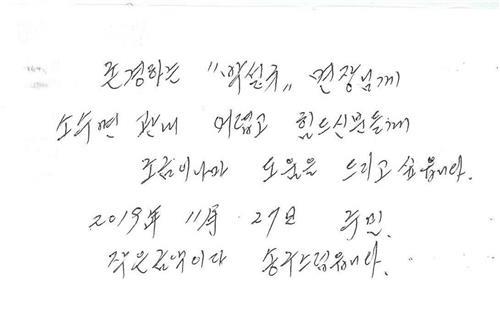 존경하는 "박설규" 면장님께
소수면 관내 어렵고 힘드신분들게
조금이나마 도움을 드리고 싶읍니다.
2019年 11月 27日 주민.
작은금액이라 송구스럽습니다.